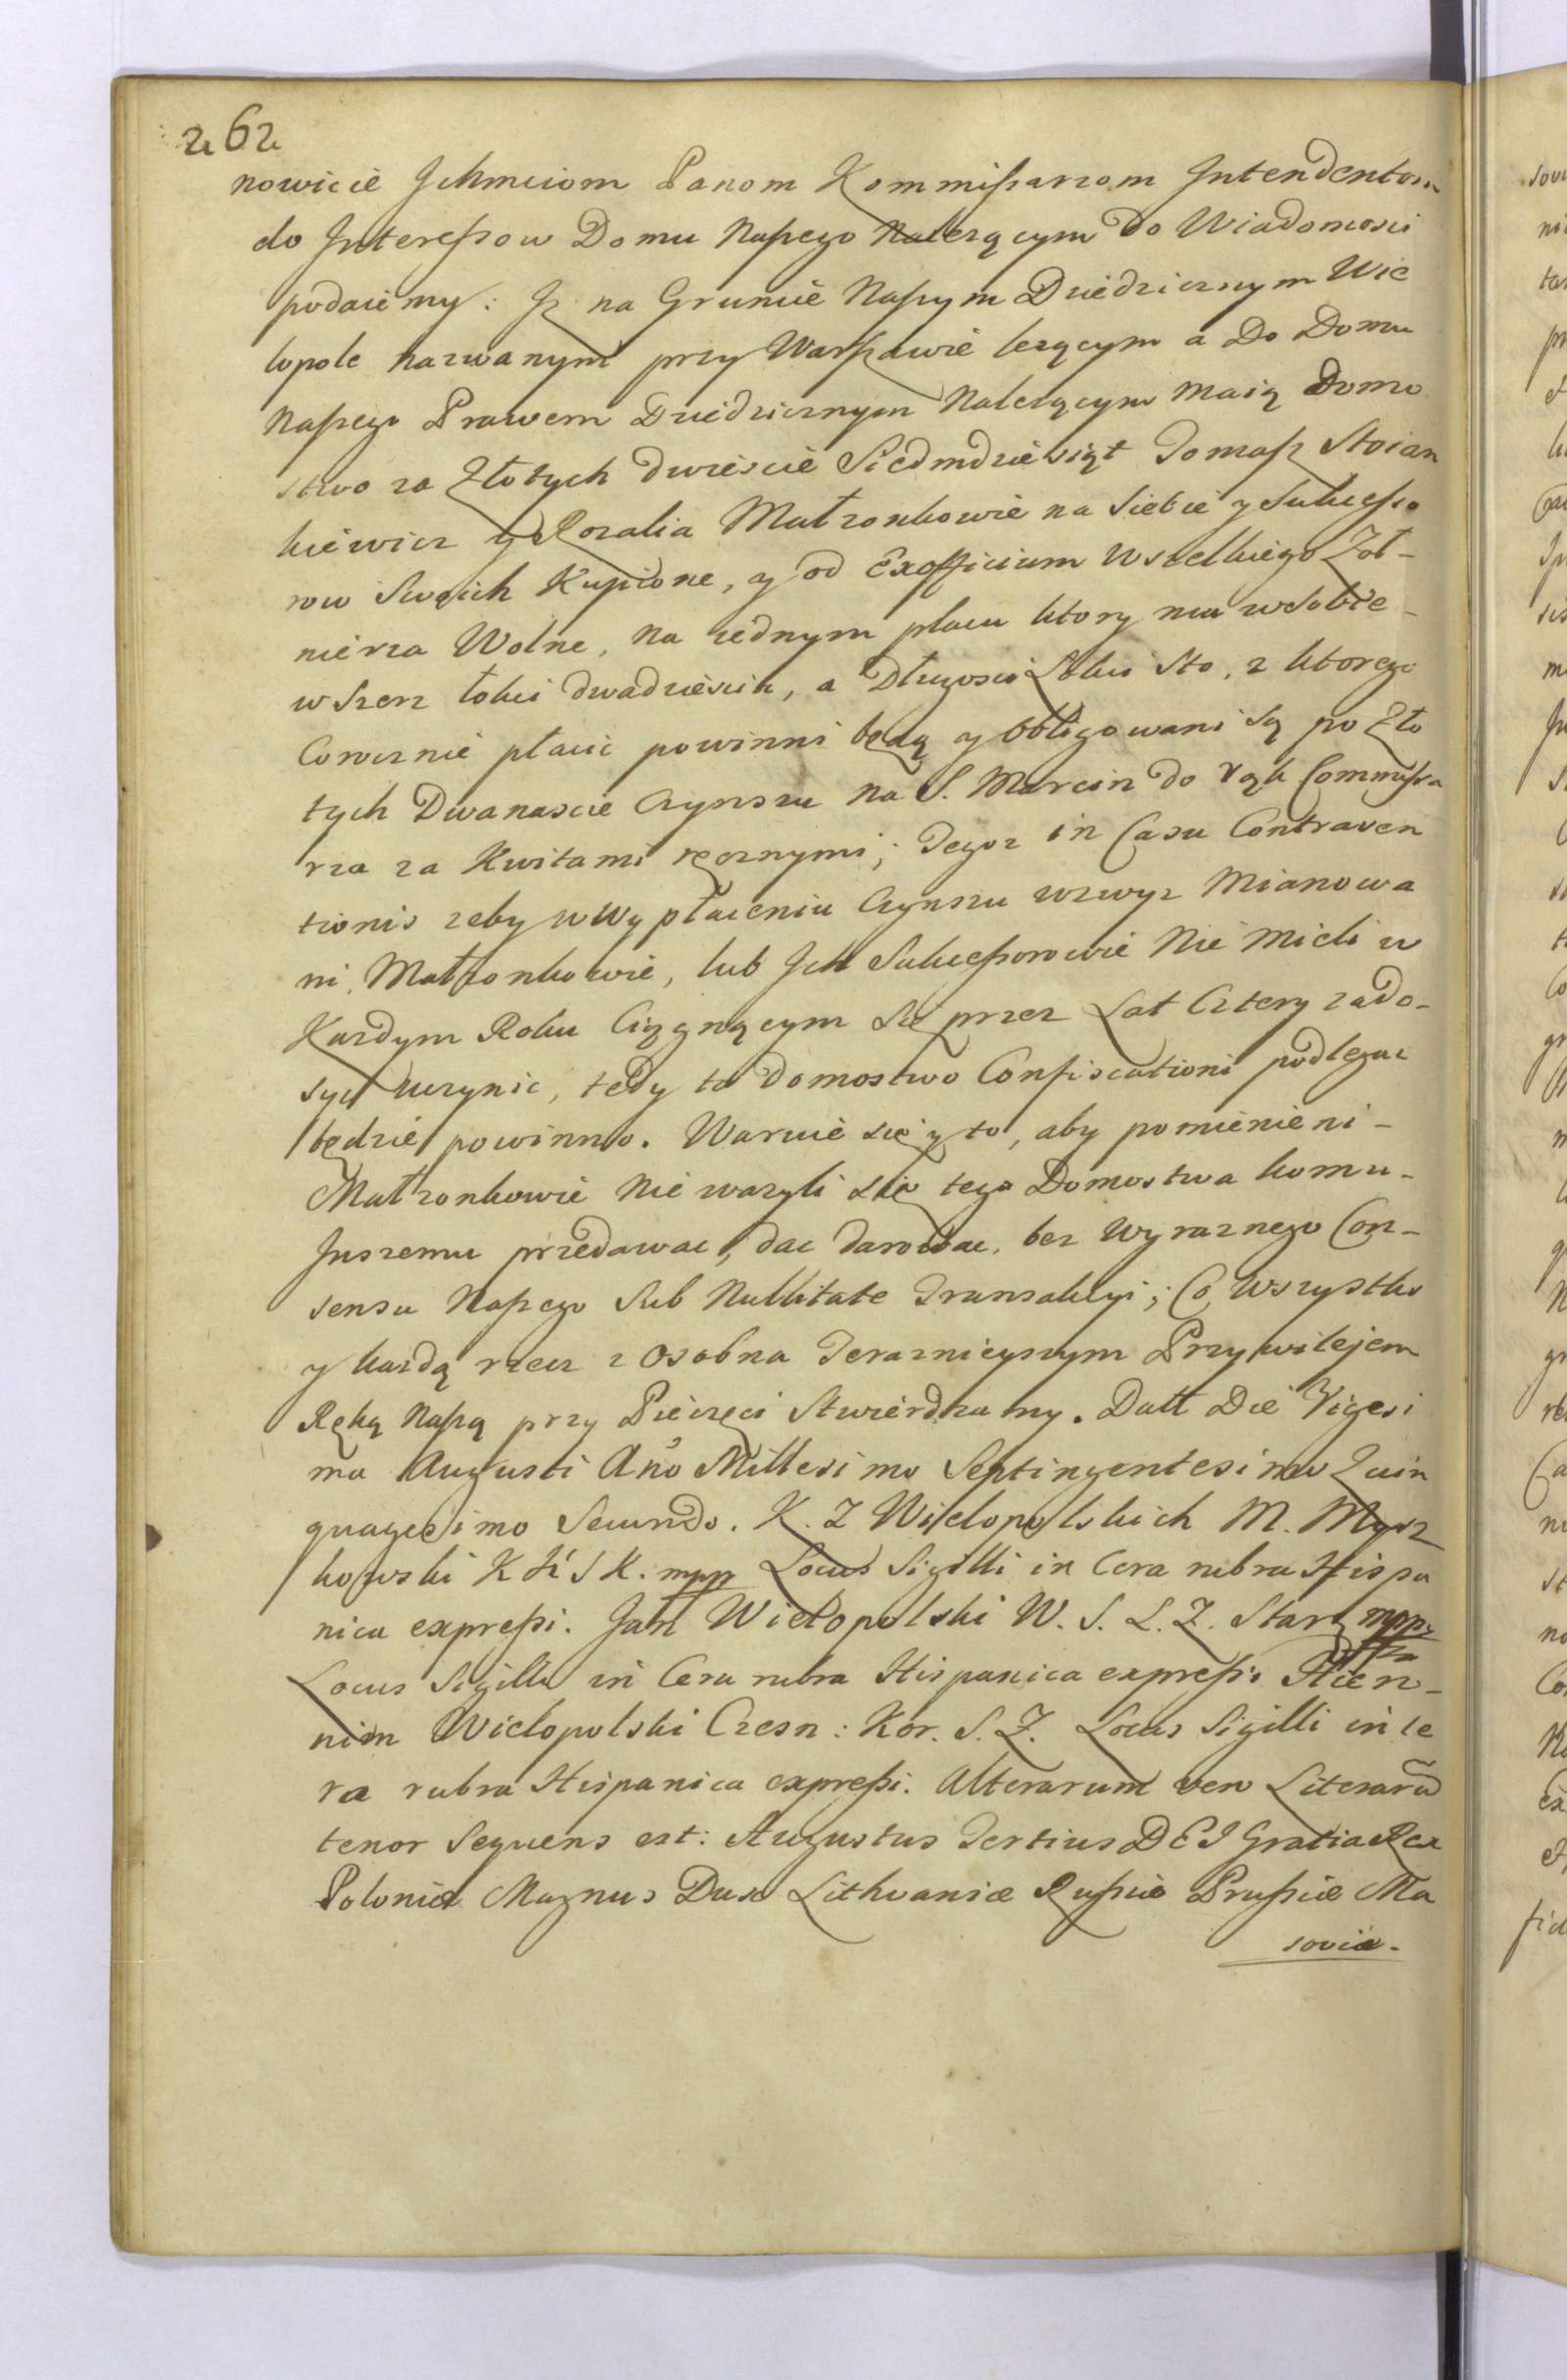 262
nowicie Jchmciom Panom Kommißarzom Jntendentom
do Jntereßow Domu Naßego Nalezącym do Wiadomosci
podaiemy: Jz na Gruncie Naßym Dziedzicznym Wie
lopole nazwanym przy Warßawie lezącym a Do Domu
Naßego Prawem Dziedzicznym Nalezącym maią Domo
stwo za Złotych dwieście Siedmdziesiąt Tomaß Stoian
kiewicz y Rozalia Małzonkowie na Siebie y Sukceßo
row Swoich Kupione, y od Exofficium Wszelkiego Zoł-
nierza Wolne, na iednym placu ktory ma w Sobie-
w Szerz łokci dwadzieścia, a Długosci Łokci Sto, z ktorego
Corocznie płacic powinni będą y obligowani są po Zło
tych Dwanascie Czynszu na S. Marcin do rąk Commißa
rza za Kwitami ręcznymi; Tegoz in Casu Contraven
tionis zeby w wypłaceniu Czynszu wzwyz Mianowa
ni Małzonkowie, lub Jch Sukceßorowie Nie mieli w
Kazdym Roku Ciągnącym się przez Lat Cztery zado-
syc uczynic, tedy to domostwo Confiscationi podlegac
będzie powinno. Waruie się y to, aby pomienieni-
Małzonkowie Nie wazyli się tego Domostwa komu-
Jnszemu przedawac, dac darowac, bez Wyraznego Con-
sensu Naßego Sub Nullitate Transakcyi; Co Wszystko
y kazdą rzecz z osobna Teraznieyszym Przywilejem
Ręką Naßą przy Pieczęci Stwierdzamy. Datt Die Vigesi
ma Augusti Ano Millesimo Septingentesimo Quin
quagesimo Secundo. K. Z Wielopolskich M. Mysz
kowski K H S K. mpp Locus Sigilli in Cera rubra Hispa
nica expreßi. Jan Wielopolski W. S. L. Z. Star mpp
Locus Sigilli in Cera rubra Hispanica expreßi Hiero-
nim Wielopolski Czesn: Kor. S. Z. Locus Sigilli in Ce
ra rubra Hispanica expreßi. Alterarum vero Literarũ
tenor Sequens est: Augustus Tertius DEI Gratia Rex
Poloniæ Magnus Dux Lithvaniæ Rußiæ Prußiæ Ma
soviæ.